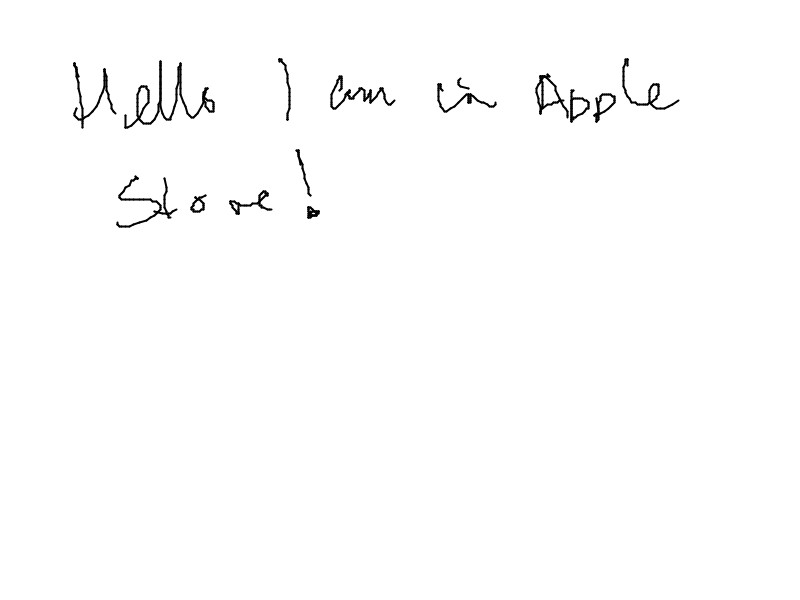 Hello I am in Apple
Store!